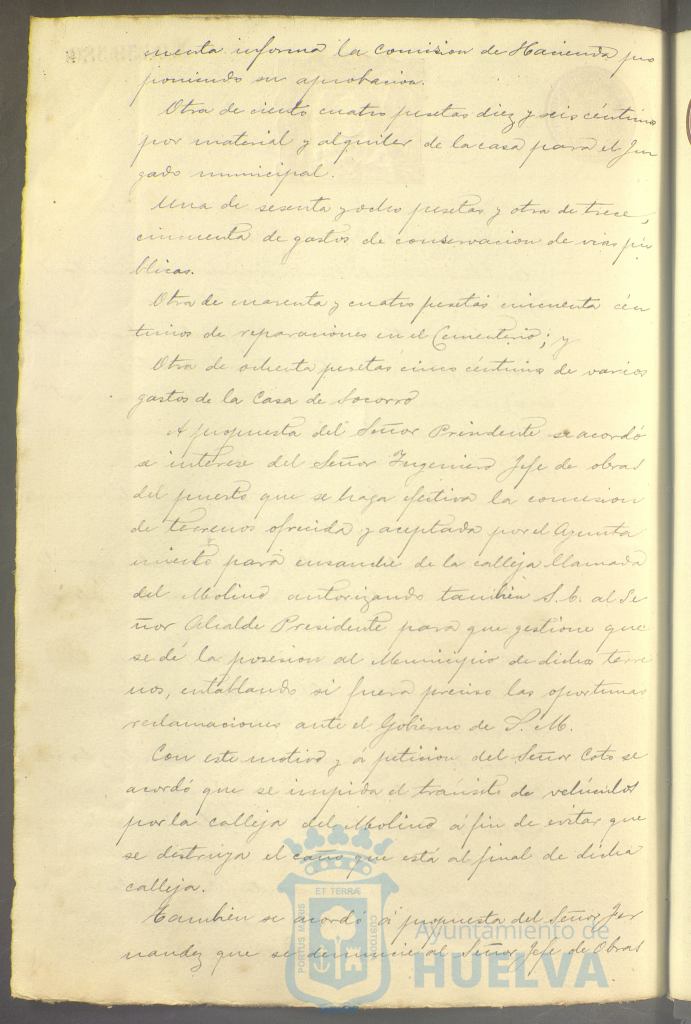 menta informa la comision de Hacienda pro
poniendo su aprobacion.
Otra de ciento cuatro pesetas diez y seis céntimos
por material y alquiler de la casa para el Juz
gado municipal.
Una de sesenta y ocho pesetas y otra de trece,
cincuenta de gastos de conservacion de vias pú
blicas.
Otra de cuarenta y cuatro pesetas cincuenta cén
timos de reparaciones en el Cementerio; y
Otra de ochenta pesetas cinco céntimos de varios
gastos de la Casa de Socorro
A propuesta del Señor Presidente se acordó
se interese del Señor Ingeniero Jefe de obras
del puerto que se haga efectiva la concesion
de terrenos ofrecida y aceptada por el Ayunta
miento para ensanche de la calleja llamada
del Molino autorizando tambien S. E. al Se
ñor Alcalde Presidente para que gestione que
se dé la posesion al Municipio de dichos terre
nos, entablando si fuera preciso las oportunas
reclamaciones ante el Gobierno de S. M.
Con este motivo y á peticion del Señor Coto se
acordó que se impida el tránsito de vehículos
por la calleja del Molino á fin de evitar que
se destruya el caño que está al final de dicha
calleja.
Tambien se acordó á propuesta del Señor
nandez que se denuncie al Señor Jefe de Obras
ET TERRÆ
PORTUS MARIS
CUSTODIA
Ayuntamiento de
HUELVA